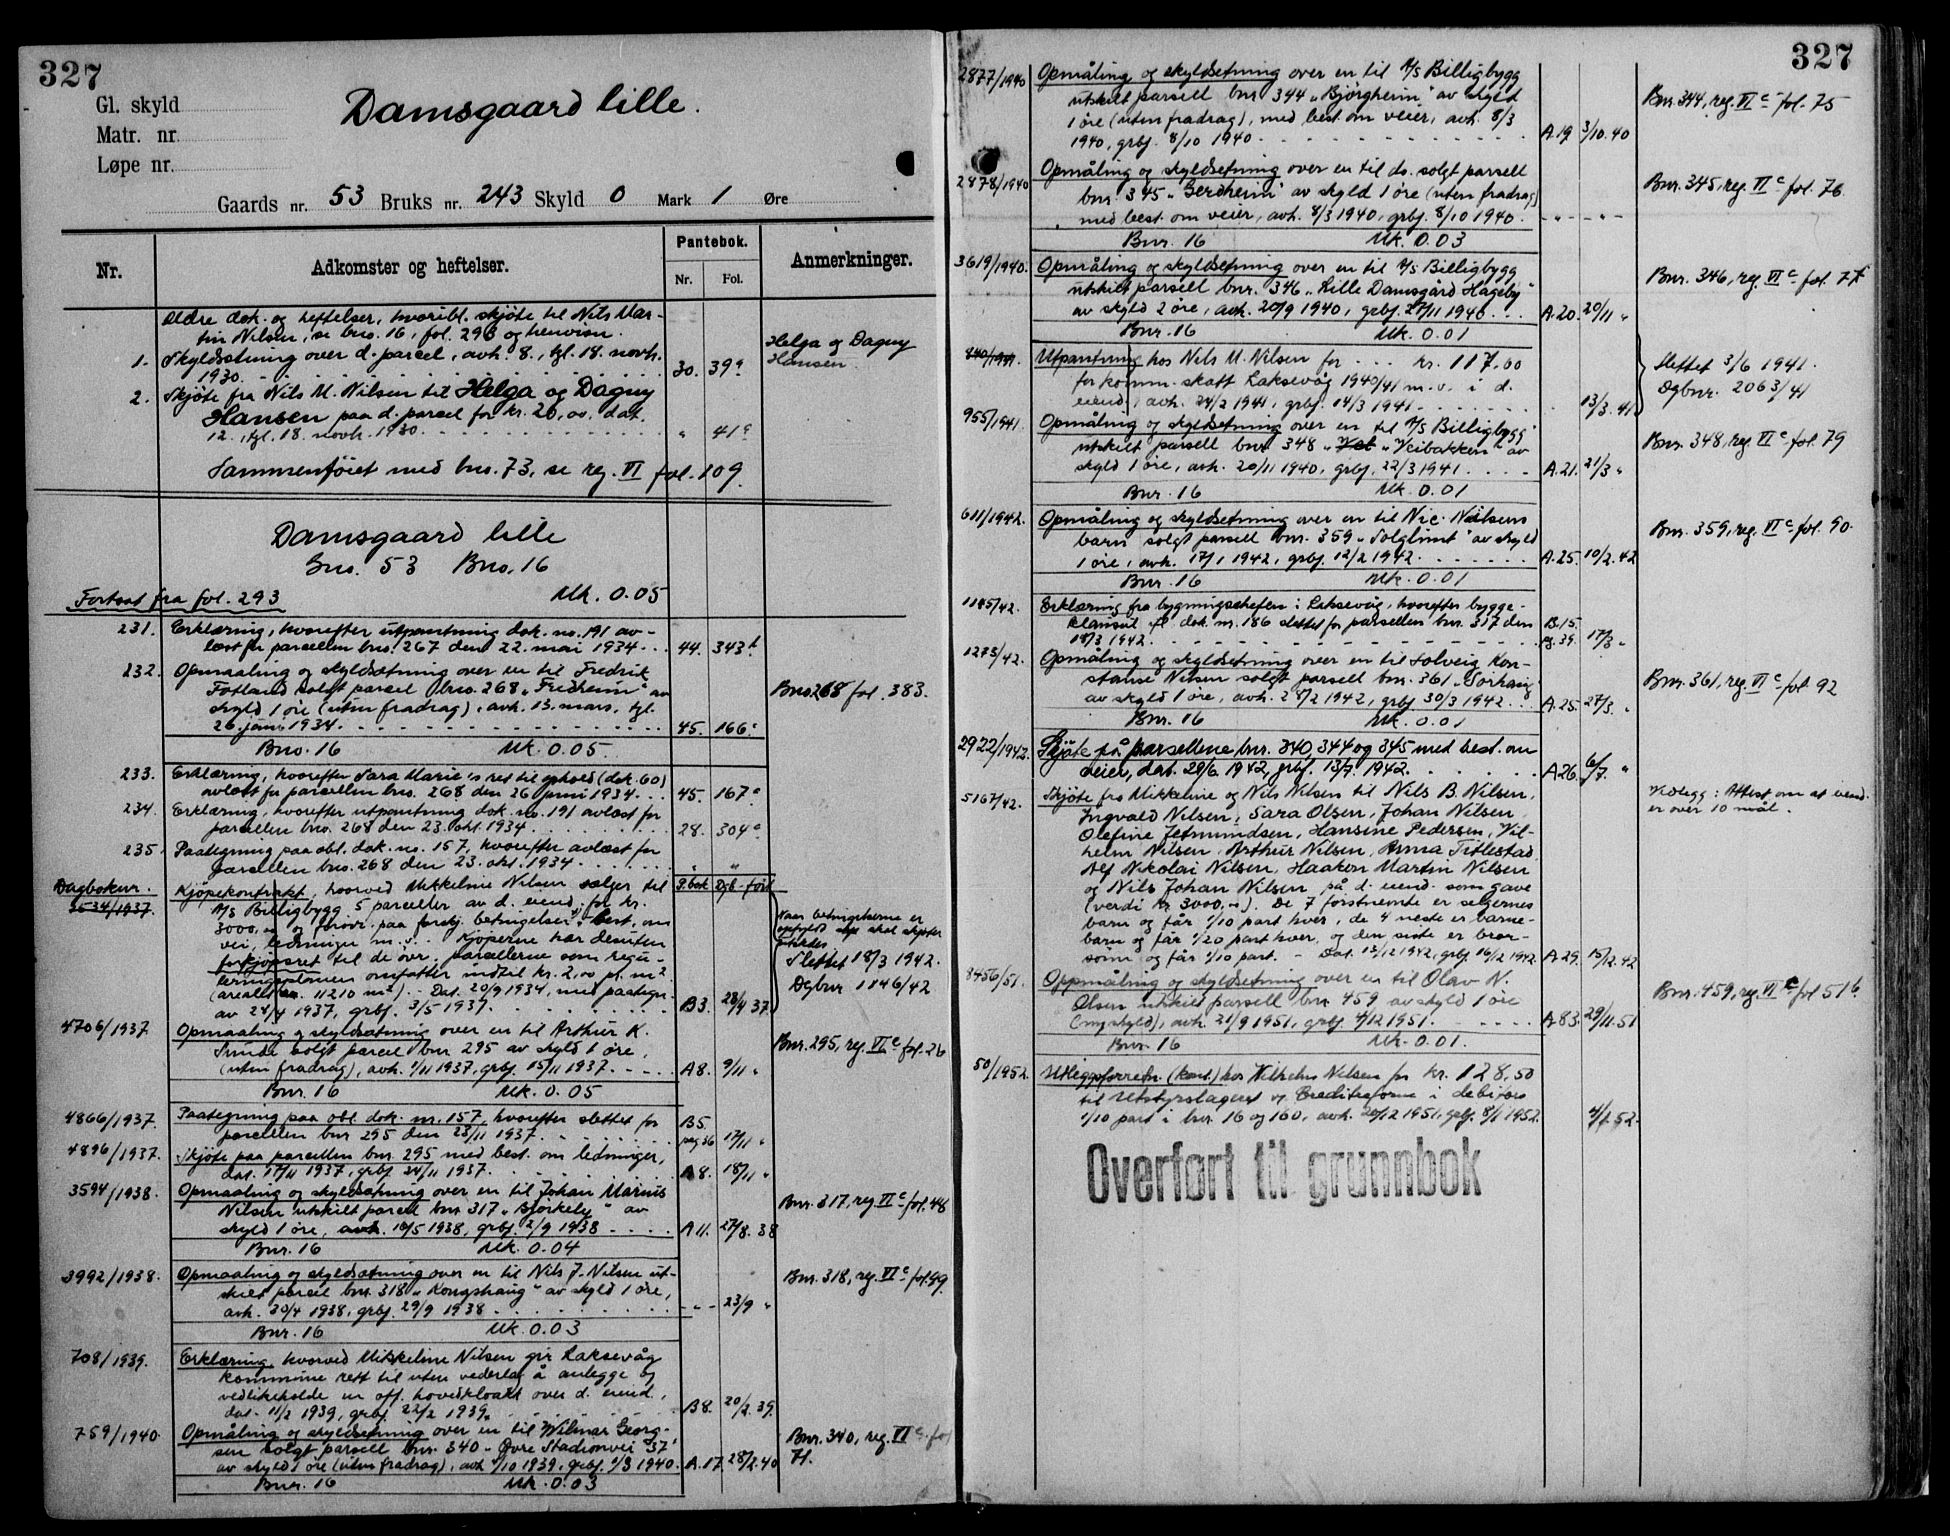 327
Gl. skyld
Matr. nr.
Løpe nr.
Damsgaard lille.
Gaards nr. 53 Bruks nr. 243 Skyld 0 Mark 1 Øre
Nr.
Adkomster og heftelser.
Pantebok.
Nr. Fol.
Anmerkninger.
Ældre dok. og heftelser, hvoribl. skjøte til Nils Mar-
tin Nilsen, se bno. 16, fol. 293 og henvisn.
1. Skyldsætning over d. parcel, avh. 8., tgl. 18. novh.
1930. 30. 39a
Helga og Dagny
Hansen.
2. Skjøte fra Nils M. Nilsen til Helga og Dagny
Hansen paa d. parcel for kr. 20,00. dat.
12., tgl. 18. novh. 1930. " 41a
Sammenføiet med bno. 73, se reg. VI fol. 109.
Damsgaard lille
Gno. 53 Bno. 16
Fortsat fra fol. 293 Mk. 0.05
231. Erklæring, hvorefter utpantning dok. no. 191 av-
læst for parcellen bno. 267 den 22. mai 1934. 44. 343b
232. Opmaaling og skyldsætning over en til Fredrik
Fotland solgt parcel bno. 268 „Fredheim" av
skyld 1 øre (uten fradrag), avh. 13. mars, tgl.
26. juni 1934. 45. 166a
Bno 268 fol. 383.
Bno. 16 Mk. 0.05.
233. Erklæring, hvorefter Sara Marie's ret til ophold (dok. 60)
avlæst for parcellen bno. 268 den 26 juni 1934. 45. 167a
234. Erklæring, hvorefter utpantning dok. no. 191 avlæst for
parcellen bno. 268 den 23. okt. 1934. 28. 304a
235. Paategning paa obl. dok. no. 157, hvorefter avlæst for
parcellen bno. 268 den 23. okt. 1934. " "
Dagboknr. P.bok Dgb.-ført
3534/1937. Kjøpekontrakt, hvorved Mikkeline Nilsen sælger til
A/S Billigbygg 5 parceller av d. eiend. for kr.
3000,00 og forøvr. paa forskj. betingelser. Best. om
vei, ledninger m.v. Kjøperne har desuten
forkjøpsret til de øvr. parcellerne som regu-
leringsplanen omfatter indtil kr. 2,00 pr. m²
(areal ca. 11210 m²). Dat. 20/9 1934, med paategn.
av 24/4 1937, grbf. 3/5 1937. B3. 28/4 37
Naar betingelserne er
opfyldt skal skjøter
utstedes
Slettet 18/3 1942.
Dgbnr 1146/42
4706/1937. Opmaaling og skyldsætning over en til Arthur K.
Sunde solgt parcel bnr 295 av skyld 1 øre,
(uten fradrag), avh. 1/11 1937, grbf. 15/11 1937. A8. 9/11 "
Bnr. 295, reg. VI c fol. 26
Bnr. 16 Mk. 0.05
4866/1937. Paategning paa obl. dok. nr. 157, hvorefter slettet for
parcellen bnr 295 den 23/11 1937. B5. pag 36 17/11 "
4896/1937. Skjøte paa parcellen bnr. 295 med best. om ledninger,
dat. 17/11 1937, grbf 24/11 1937. A8. 18/11 "
3594/1938. Opmaaling og skyldsætning over en til Johan Marius
Nilsen utskilt parcel bnr 317 „Bjørkely" av
skyld 1 øre, avh. 10/5 1938, grbf. 2/9 1938 A11. 27/8. 38
Bnr. 317, reg VI c fol. 48
Bnr. 16 Mk. 0.04
3992/1938. Opmaaling og skyldsætning over en til Nils J. Nilsen ut-
skilt parcel bnr. 318 „Kongshaug" av skyld 1 øre,
avh. 30/4 1938, grbf. 29/9 1938 - - - 23/9 "
Bnr. 318, reg. VI c fol. 49.
Bnr. 16 Mk. 0.03
708/1939. Erklæring, hvorved Mikkeline Nilsen gir Laksevåg
kommune rett til uten vederlag å anlegge og
vedlikeholde en off. hovedkloakk over d. eiend.,
dat. 11/2 1939, grbf. 22/2 1939. B8. 20/2. 39.
759/1940. Opmåling og skyldsetning over en til Wilmar Georg-
sen solgt parsell bnr. 340 „Øvre Stadionvei 37"
av skyld 1 øre (uten fradrag), avh. 1/10 1939, grbf. 1/3 1940. A.17. 28/2. 40
Bnr. 340, reg. VI c. fol
71.
Bnr. 16 Mk. 0.03
327
2877/1940 Opmåling og skyldsetning over en til A/S Billigbygg
utskilt parsell bnr. 344 „Bjørgheim" av skyld
1 øre (uten fradrag), med best. om veier, avh. 8/3
1940, grbf. 8/10 1940. A.19 3/10. 40
Bnr. 344, reg. VI c fol. 75
2878/1940 Opmåling og skyldsetning over en til ds. solgt parsell
bnr. 345 „Gerdheim" av skyld 1 øre (uten fradrag)
med best. om veier, avh. 8/3 1940, grbf. 8/10 1940. - " - - " -
Bnr. 345, reg. VI c fol. 76.
Bnr. 16 Mk. 0.03
3619/1940. Opmåling og skyldsetning over en til A/S Billigbygg
utskilt parsell bnr. 346 „Lille Damsgård Hageby"
av skyld 2 øre, avh. 20/9 1940, grbf. 27/11 1940. A.20. 20/11 "
Bnr. 346, reg. VI c fol. 77
Bnr. 16 Mk. 0.01
840/1941. Utpantning hos Nils M. Nilsen for - - - kr. 117,00
for komm. skatt Laksevåg 1940/41 m.v. i d.
eiend., avh. 24/2 1941, grbf. 14/3 1941. 13/3. 41
Slettet 3/6 1941.
Dgbnr. 2063/41
955/1941. Opmåling og skyldsetning over en til A/S Billigbygg
utskilt parsell bnr 348 „Veibakken" av
skyld 1 øre, avh. 20/11 1940, grbf. 22/3 1941. A.21. 21/3 "
Bnr. 348, reg VI c fol. 79
Bnr. 16 Mk. 0.01
611/1942. Opmåling og skyldsetning over en til Nic. Nilsens
barn solgt parsell bnr. 359 „Solglimt" av skyld
1 øre, avh. 17/1 1942, grbf. 12/2 1942. A.25. 10/2. 42
Bnr. 359, reg. VI c fol. 90.
Bnr. 16 Mk. 0.01
1145/42. Erklæring fra bygningssjefen i Laksevåg, hvorefter bygge-
klausul ifl. dok. nr. 186 slettet for parsellen bnr. 317 den
18/3 1942. B.15. pg. 39. 17/3 "
1273/42. Opmåling og skyldsetning over en til Solveig Kon-
stanse Nilsen solgt parsell bnr. 361 „Solhaug"
av skyld 1 øre, avh. 25/2 1942, grbf 30/3 1942. A.25. 27/3. "
Bnr. 361, reg. VI c fol 92
Bnr. 16 Mk. 0.01
2922/1942. Skjøte på parsellene bnr. 340, 344 og 345 med best. om
veier, dat. 29/6 1942, grbf. 13/7. 1942. A.26. 6/7. "
5167/42. Skjøte fra Mikkeline og Nils Nilsen til Nils B. Nilsen,
Ingvald Nilsen, Sara Olsen, Johan Nilsen,
Olefine Jetmundsen, Hansine Pedersen, Vil-
helm Nilsen, Arthur Nilsen, Anna Titlestad,
Alf Nikolai Nilsen, Haakon Martin Nilsen
og Nils Johan Nilsen på d. eiend. som gave
(verdi kr. 3000,00). De 7 førstnevnte er selgernes
barn og får 1/10 part hver, de 4 neste er barne-
barn og får 1/20 part hver, og den siste er bror-
sønn og får 1/10 part. - Dat. 15/12 1942, grbf. 16/12 1942. A.29. 15/12. 42
Vedlegg: Attest om at eiend.
er over 10 mål.
8456/51. Oppmåling og skyldsetning over en til Olav N.
Olsen utskilt parsell bnr 459 av skyld 1 øre
(ny skyld), avh. 21/9 1951, grbf. 4/12 1951. A.83. 29/11. 51
Bnr. 459, reg. VI fol 516.
Bnr. 16 Mk. 0.01.
50/1952. Utleggsforretn. (kont.) hos Wilhelm Nilsen for kr. 128,50
til Utstyrslageret v/ Creditreform i debitors
1/10 part i bnr. 16 og 160, avh. 20/12 1951, grbf. 8/1 1952. 4/1. 52.
Overført til grunnbok